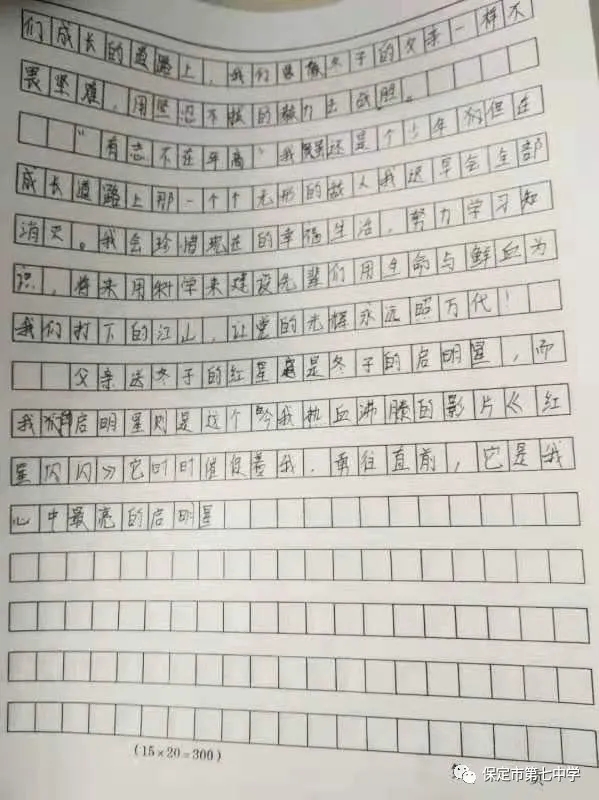 们成长的道路上，我们要像冬子的父亲一样不
畏坚难，用坚忍不拔的毅力去战胜。
“有志不在年高”我虽还是个少年但在
成长道路上那一个个无形的敌人我迟早会全部
消灭。我会珍惜现在的幸福生活，努力学习知
识，将来用科学来建设先辈们用生命与鲜血为
我们打下的江山，让党的光辉永远照万代！
父亲送冬子的红星是冬子的启明星，而
我的启明星则是这个令我热血沸腾的影片《红
星闪闪》它时时催促着我，勇往直前，它是我
心中最亮的启明星
(15×20=300)
保定市第七中学